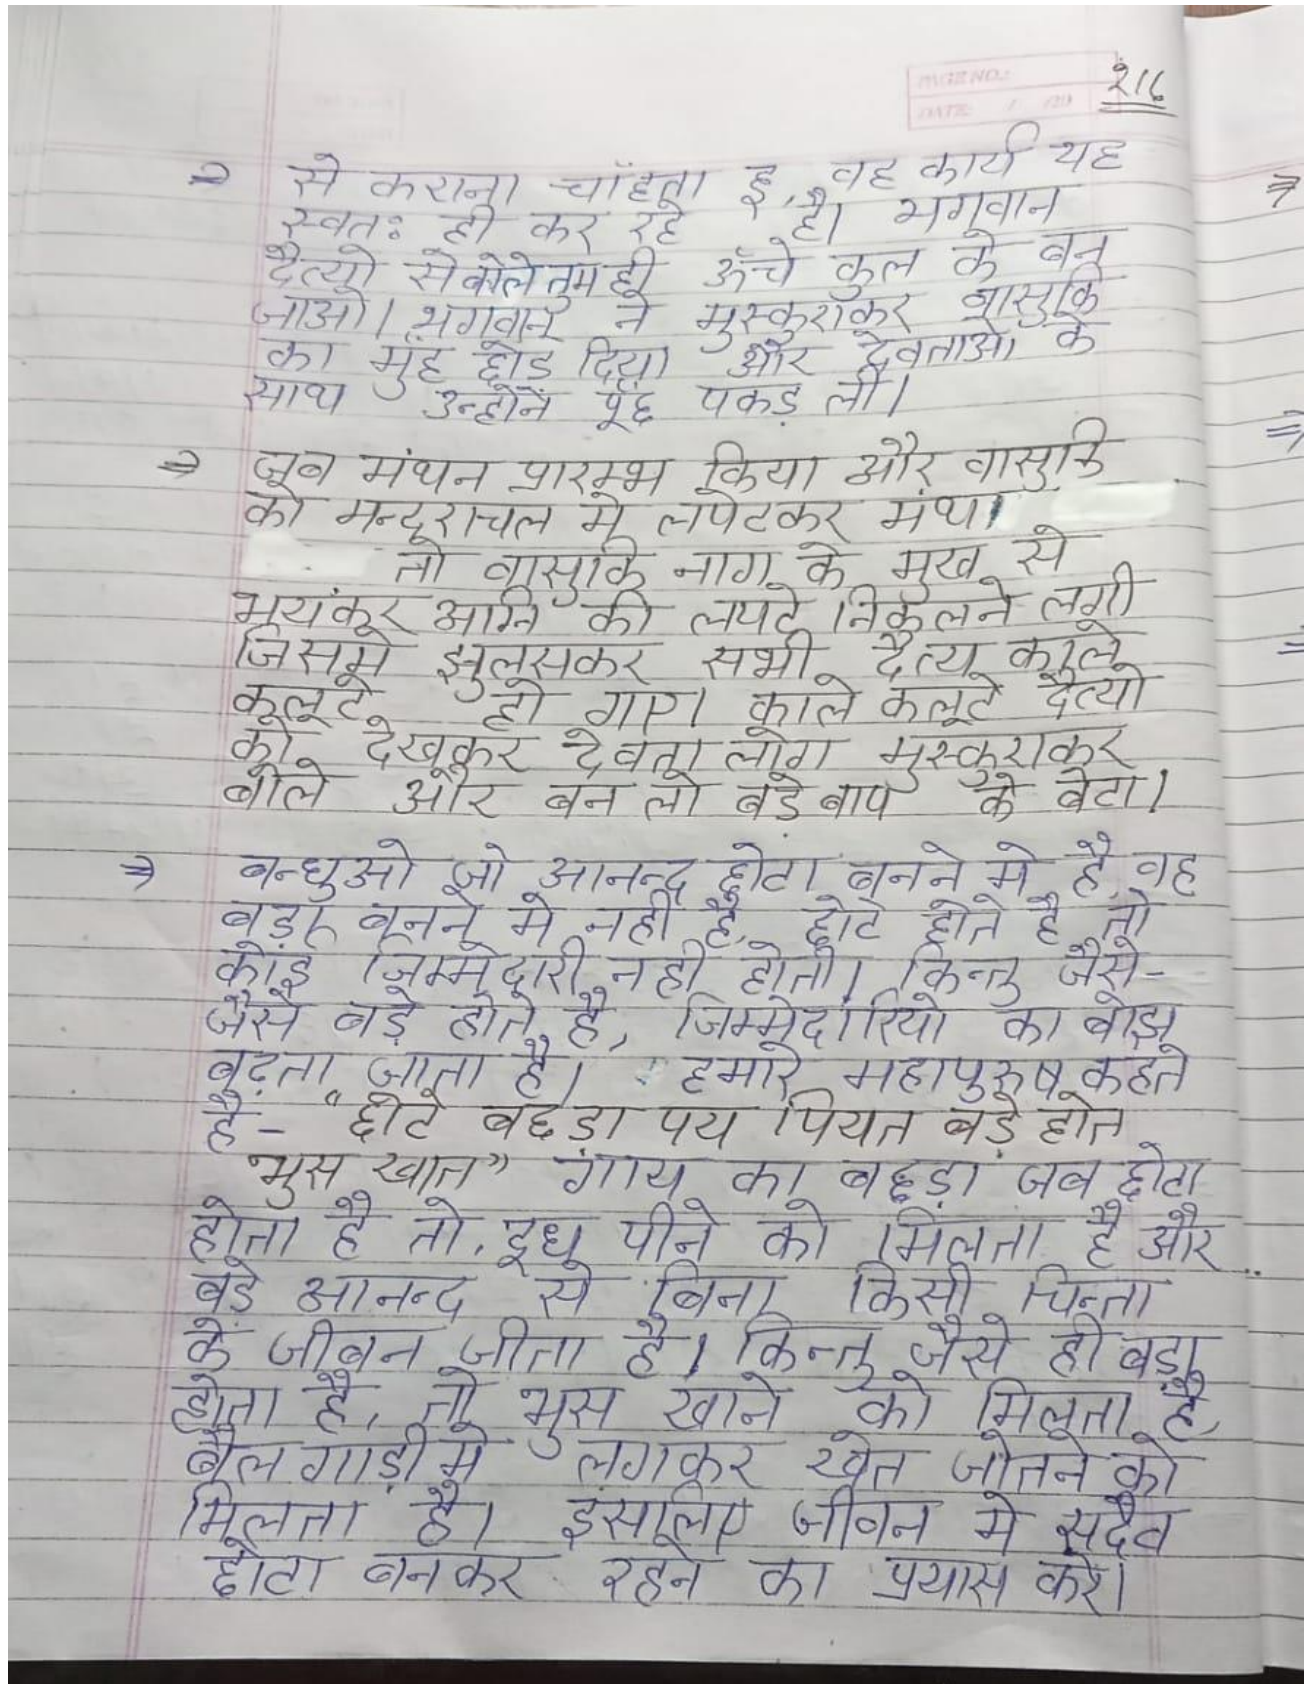 PAGE NO.:
DATE: / /20
⇒ से कराना चाँहता हूँ, वह कार्य यह
स्वतः ही कर रहे है। भगवान
दैत्यो से बोले तुम ही ऊँचे कुल के बन
जाओ। भगवान ने मुस्कुराकर वासुकि
का मुंह छोड़ दिया और देवताओ के
साथ उन्होनें पूंछ पकड़ ली।
⇒ जब मंथन प्रारम्भ किया और वासुकि
को मन्दराचल मे लपेटकर मंथा
तो वासुकि नाग के मुख से
भयंकर अग्नि की लपटे निकलने लगी
जिसमे झुलसकर सभी दैत्य काले
कलूटे हो गए। काले कलूटे दैत्यो
को देखकर देवता लोग मुस्कुराकर
बोले और बन लो बड़े बाप के बेटा।
⇒ बन्धुओ जो आनन्द छोटा बनने मे है, वह
बड़ा बनने मे नही है, छोटे होते है तो
कोई जिम्मेदारी नही होती। किन्तु जैसे-
जैसे बड़े होते है, जिम्मेदारियो का बोझ
बढ़ता जाता है। हमारे महापुरुष कहते
है- "छोटे बछड़ा पय पियत बड़े होत
भुस खात" गाय का बछड़ा जब छोटा
होता है तो, दूध पीने को मिलता है और
बड़े आनन्द से बिना किसी चिन्ता
के जीवन जीता है। किन्तु जैसे ही बड़ा
होता है, तो भुस खाने को मिलता है,
बैल गाड़ी मे लगकर खेत जोतने को
मिलता है। इसलिए जीवन मे सदैव
छोटा बनकर रहने का प्रयास करे।